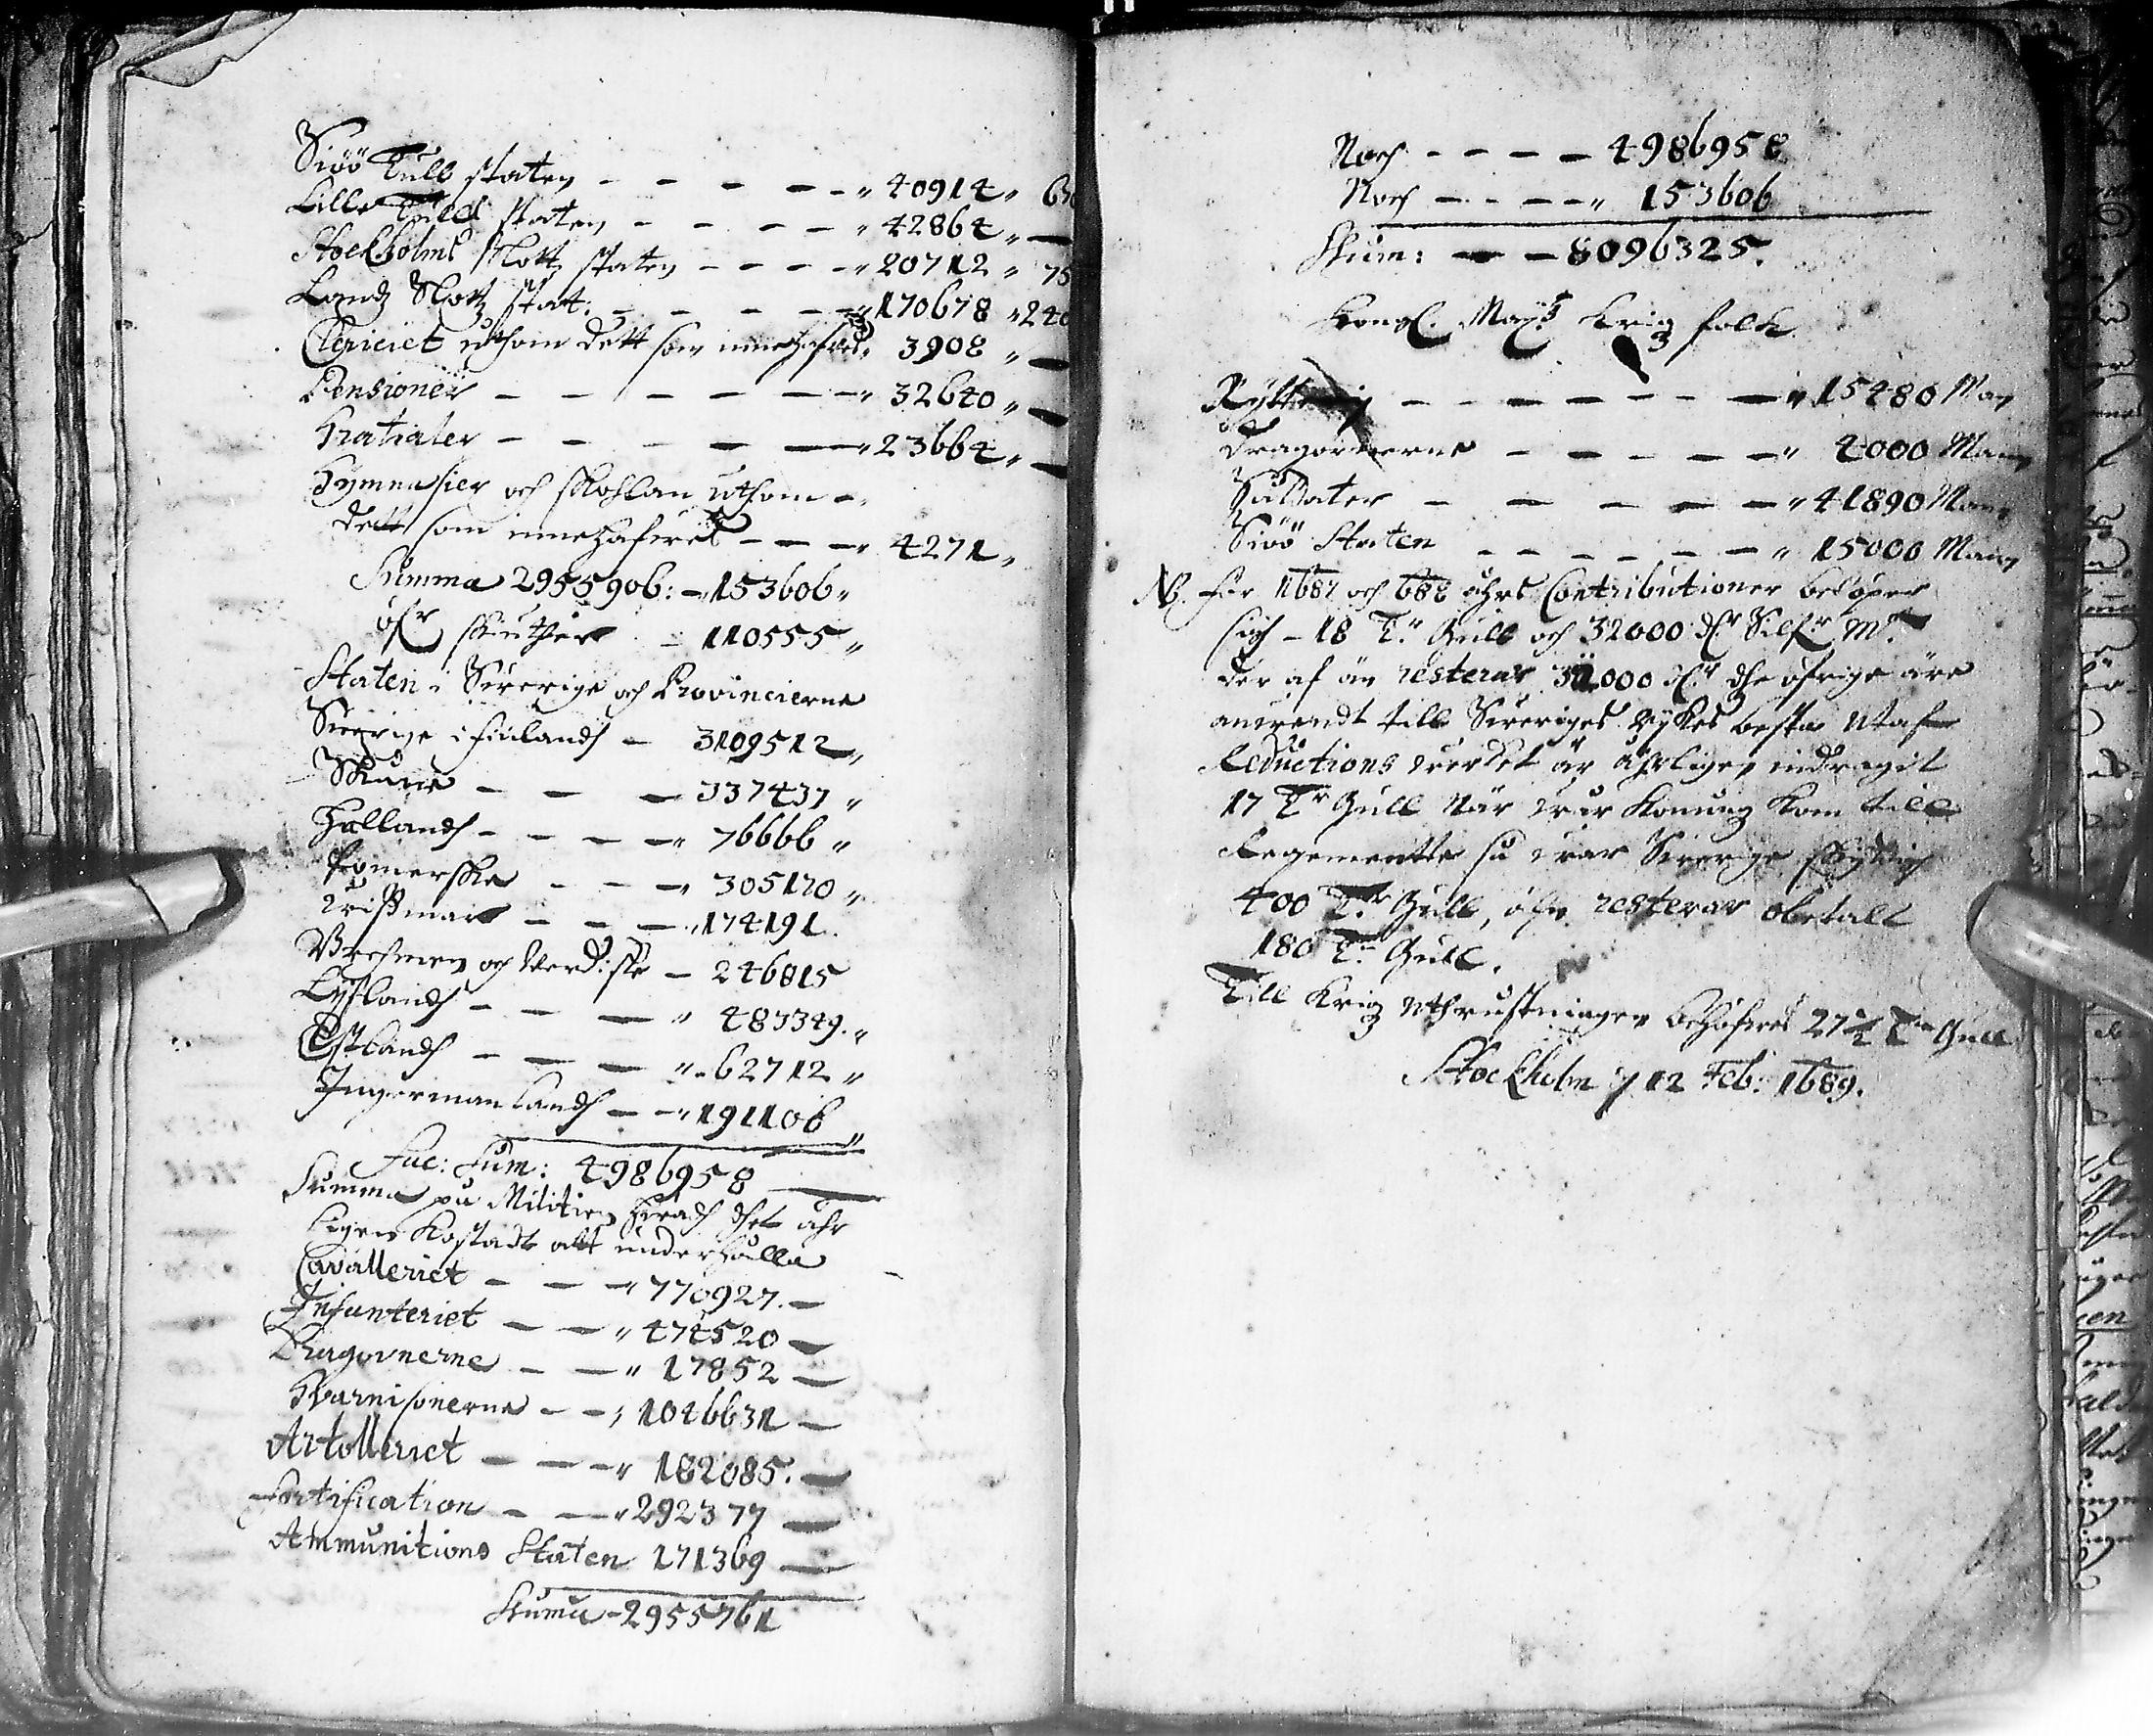 Siöö Tull staten - - - - - " 40914 "
Lille Tulls staten - - - - " 42864 " -
Stockholms Slottz staten - - - - " 20712 " 75
Landz Slottz stat: - - - - - " 170678 " 240
Clericiet uthom dett som innehafves " 3908 " -
Pensioner - - - - - - " 32640 " -
Gratialer - - - - - " 23664 " -
Gymnasier och skohlan uthom -
dett som innehafves - - - " 4271 "
Summa 2955906: - 153606 "
öfr skiuther - 110555 "
Staten i Swerige och Provincierne
Swerige i Finlandh - 3109512 "
Skåne - - - 337437 "
Hallandh - - - - " 76666 "
Pomerske - - - " 305170 "
Wissmar - - - " 174191
Brehmen och Verdiske - 246815
Lyflandh - - - " 483349. "
Estlandh - - - " 62712 "
Ingermanlandh - - " 191106 "
Fac: Sum: 4986958 -
Summa på Militien hwadh dhet åhr
ligen kostade alt underhålla
Cavalleriet - - - " 770927. -
Infanteriet - - - " 474520 -
Dragonerne - - - " 17852 -
Guarnisonerne - - " 1046631 -
Artolleriet - - - " 182085. -
Fortification - - - " 292377 -
Ammunitions Staten 171369 -
Suma - 2955761
Noch - - - - 4986958
Noch - - - - " 153606
Sum: - - 8096325.
Kongl. Maytz Krigz folk
Rytteri - - - - - - - " 15480 Man
Dragonerne - - - - - " 4000 Man
Suldater - - - - - " 41890 Man
Siöö Staten - - - - - - " 15000 Man
NB. För 1687 och 688 åhrs Contributioner belöper
sigh - 18 Tr Gull och 32000 dlr Silfr Mt
der af än resterar 32000 dlr dhe öfrige äre
anwendt till Sweriges rykes besta utaf
Reductions wercket är åhrligen indragit
17 Tr Gull När wår Konung kom till
Regemente så war Swerige skyldig
400 Tr Gull, äfn resterar obetalt
180 Tr Gull.
Till Krigz uthrustningen behöfves 27 1/2 Tr Gull
Stockholm d 12 Feb: 1689.